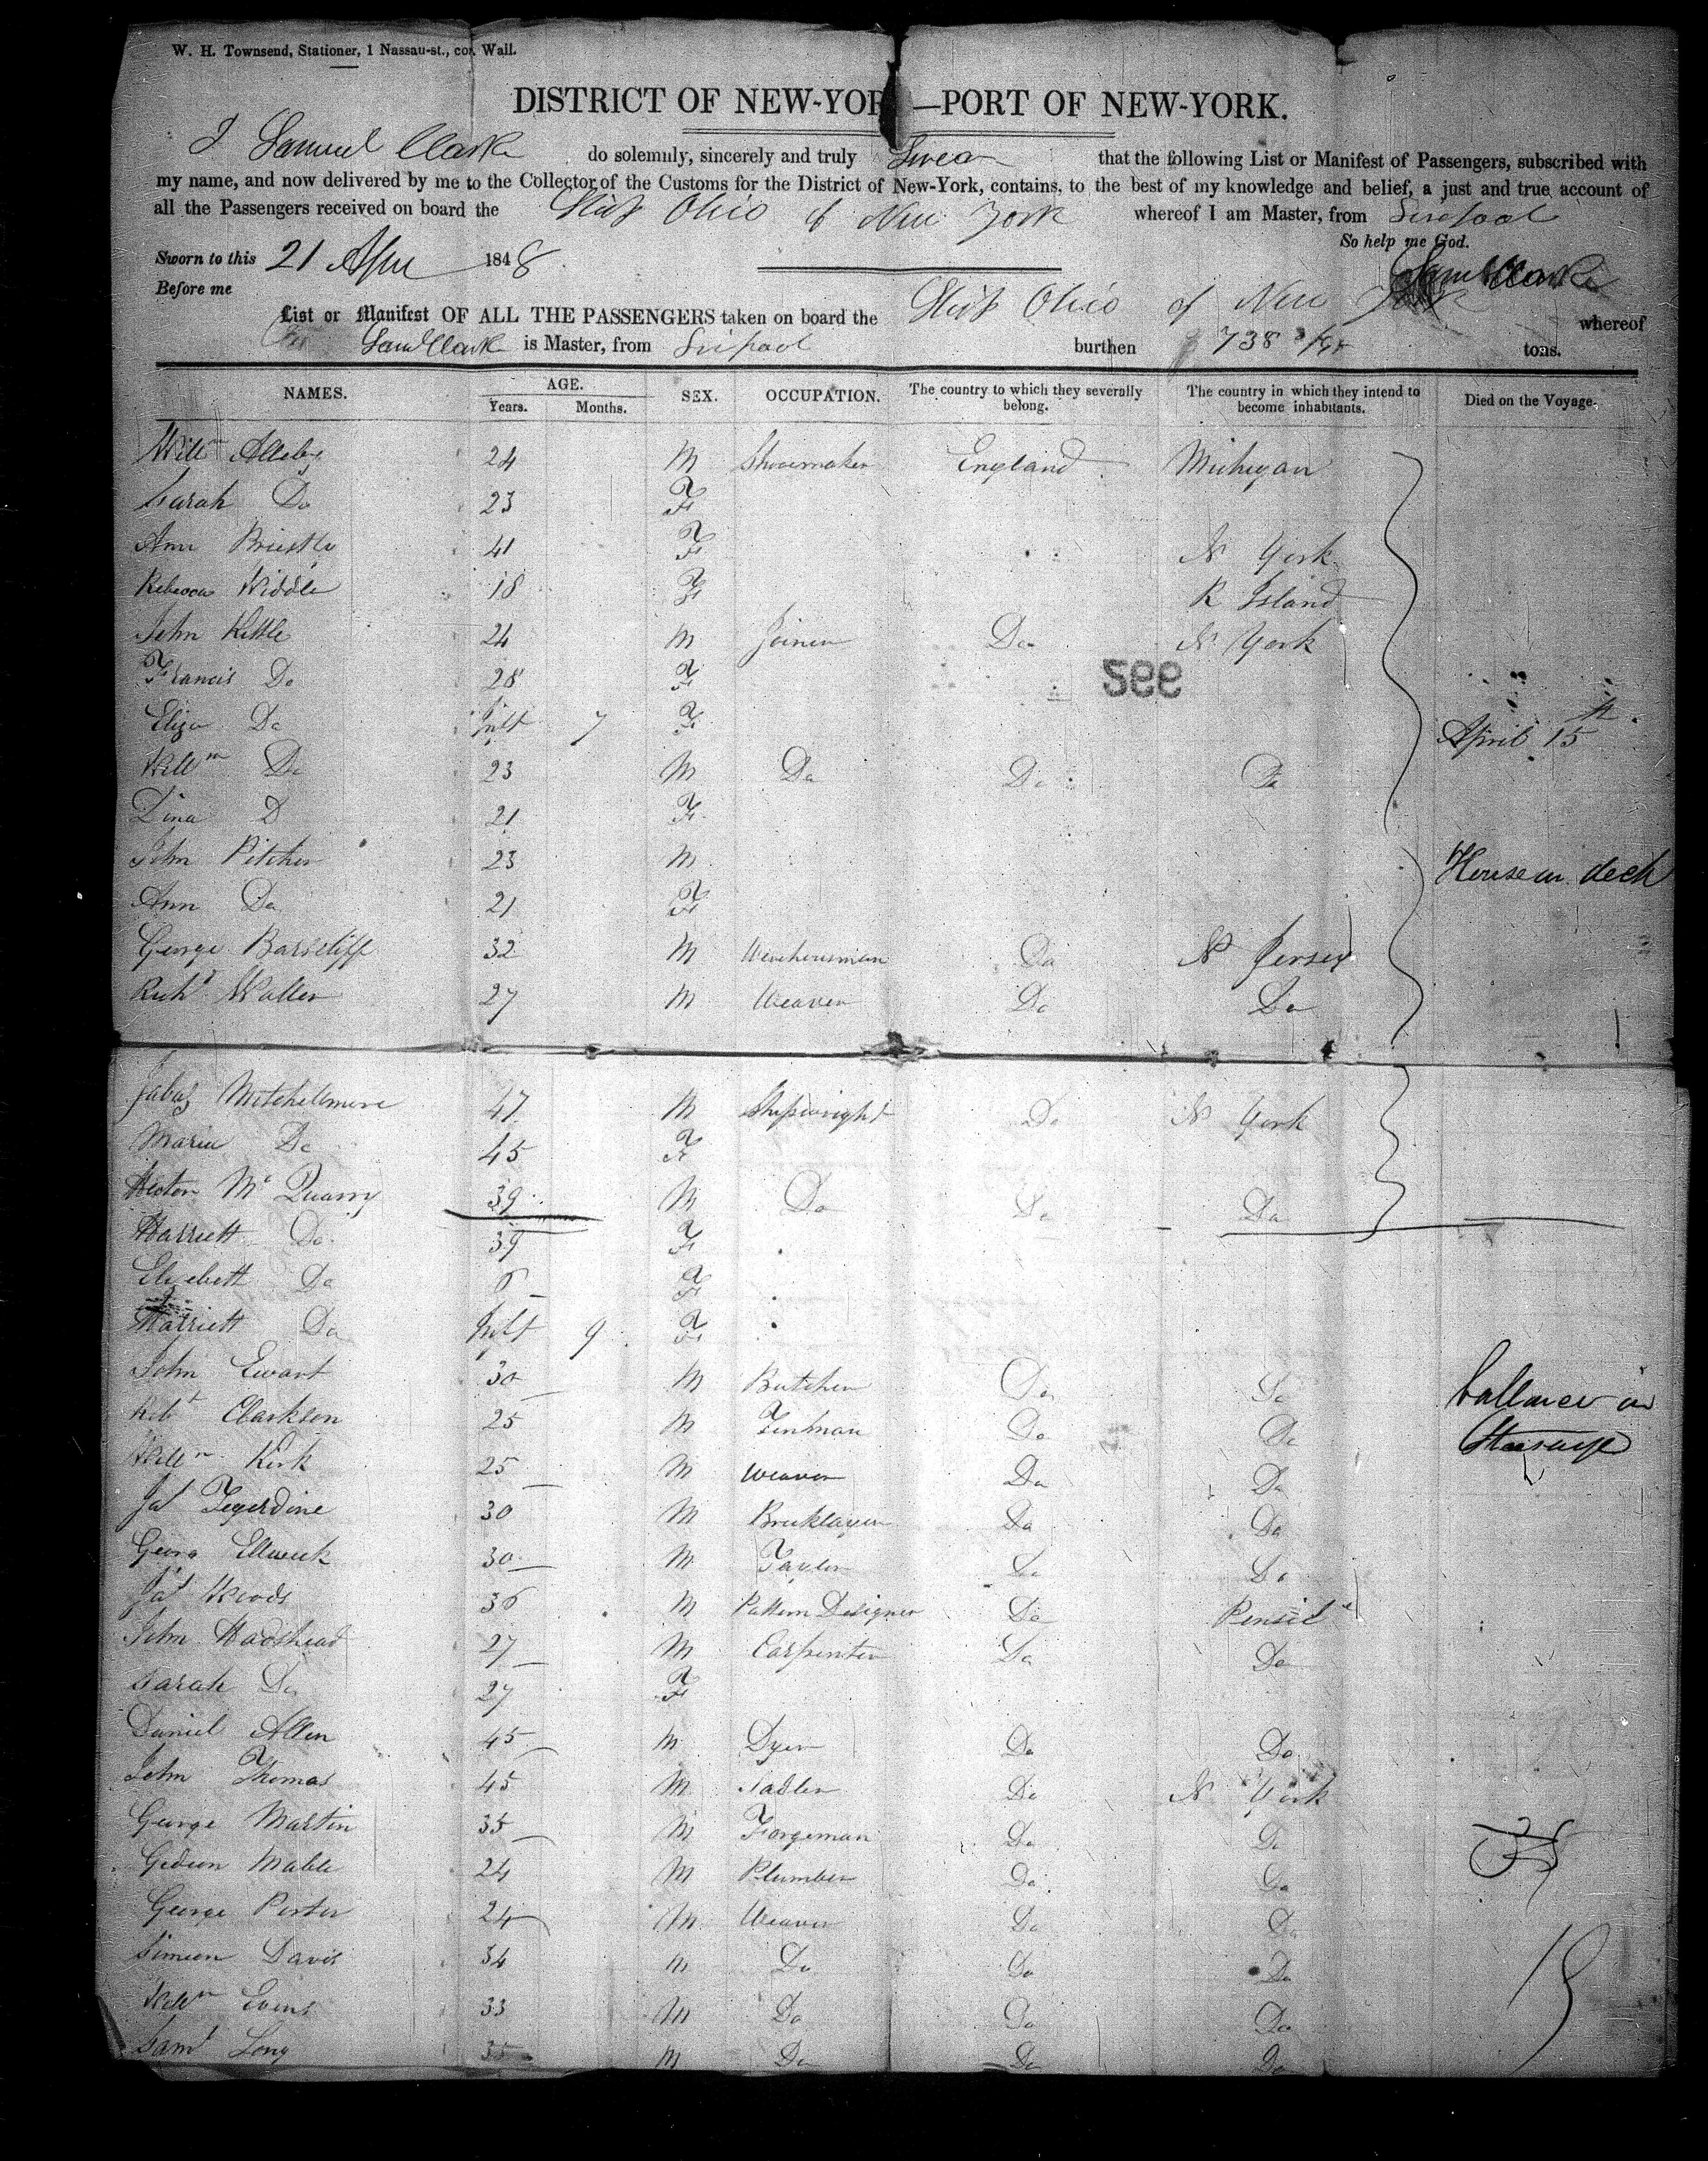 W. H. Townsend, Stationer, 1 Nassau-st., cor. Wall.
DISTRICT OF NEW-YOR —PORT OF NEW-YORK.
I Samuel Clark do solemnly, sincerely and truly Swear that the following List or Manifest of Passengers, subscribed with
my name, and now delivered by me to the Collector of the Customs for the District of New-York, contains, to the best of my knowledge and belief, a just and true account of
all the Passengers received on board the Ship Ohio of New York whereof I am Master, from Liverpool
So help me God.
Sworn to this 21 Apr 1848
Saml Clark
Before me
List or Manifest OF ALL THE PASSENGERS taken on board the Ship Ohio of New York whereof
Saml Clark is Master, from Liverpool burthen 738 tons.
NAMES. AGE. Years. Months. SEX. OCCUPATION. The country to which they severally belong. The country in which they intend to become inhabitants. Died on the Voyage.
Willm 24 M Shoemaker England Michigan
Sarah Do 23 F
Ann Priestly 41 F N York
Rebecca Widdle 18 F R Island
John Kettle 24 M Joiner Do N York
992
Francis Do 28 F
Eliza Do Inft 7 F April 15th
Willm Do 23 M Do Do Do
Lina D 21 F
John Pitcher 23 M House on deck
Ann Do 21 F
George Barscliff 32 M Warehousman Do N Jersey
Richd Waller 27 M Weaver Do Do
Jabez Mitchellmore 47 M Shipwright Do N York
Maria Do 45 F
Hector Mc Quarry 39 M Do Do Do
Harriett Do 39 F
Elizebett Do 6 F
Harriett Do Inft 9 F
John Ewart 30 M Butcher Do Do ballance in
Robt Clarkson 25 M Tinman Do Do Steerage
Willm Kirk 25 M Weaver Do Do
Jas Tegerdine 30 M Bricklayer Do Do
Georg Ellweek 30 M Taylor Do Do
Jas Woods 36 M Pattern Designer Do Pensil
John Hadshead 27 M Carpenter Do Do
Sarah Do 27 F
Daniel Allen 45 M Dyer Do Do
John Thomas 45 M Sadler Do N York
George Martin 35 M Forgeman Do Do
Gideon Mable 24 M Plumber Do Do
George Porter 24 M Weaver Do Do
Simeon Davis 34 M Do Do Do
Willm Evens 33 M Do Do Do
Saml Long 35 M Do Do Do